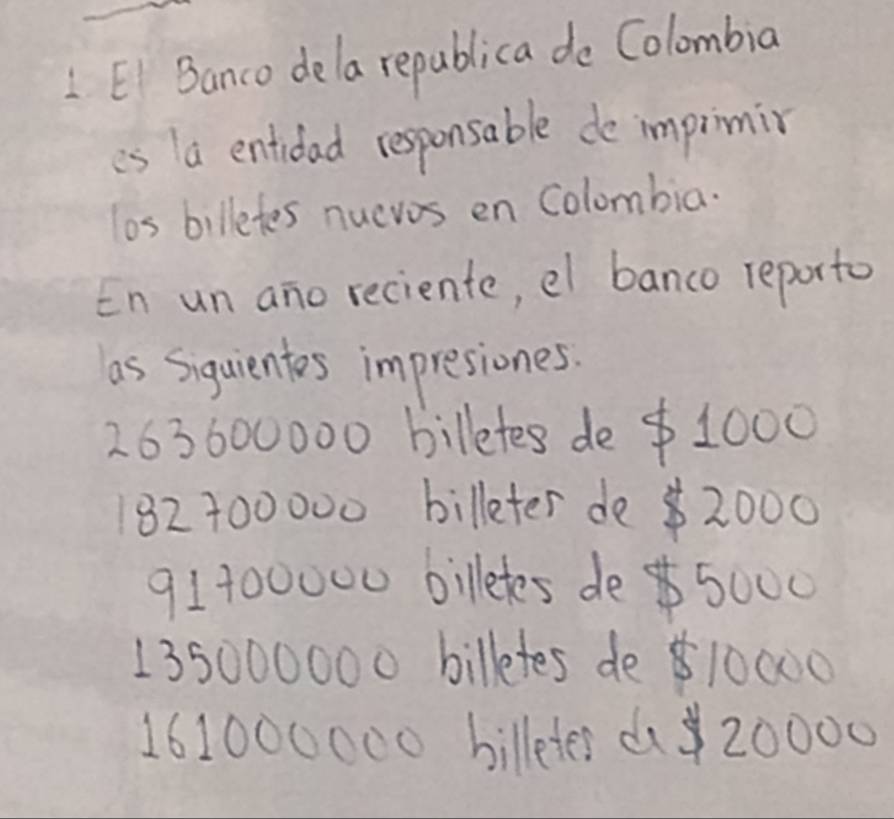 1 El Banco de la republica de Colombia
es la entidad responsable de imprimir
los billetes nuevos en Colombia.
En un año reciente, el banco reporto
las siguientes impresiones.
263600000 billetes de $1000
182700000 billetes de $2000
91700000 billetes de $5000
135000000 billetes de $10000
161000000 billetes de $20000